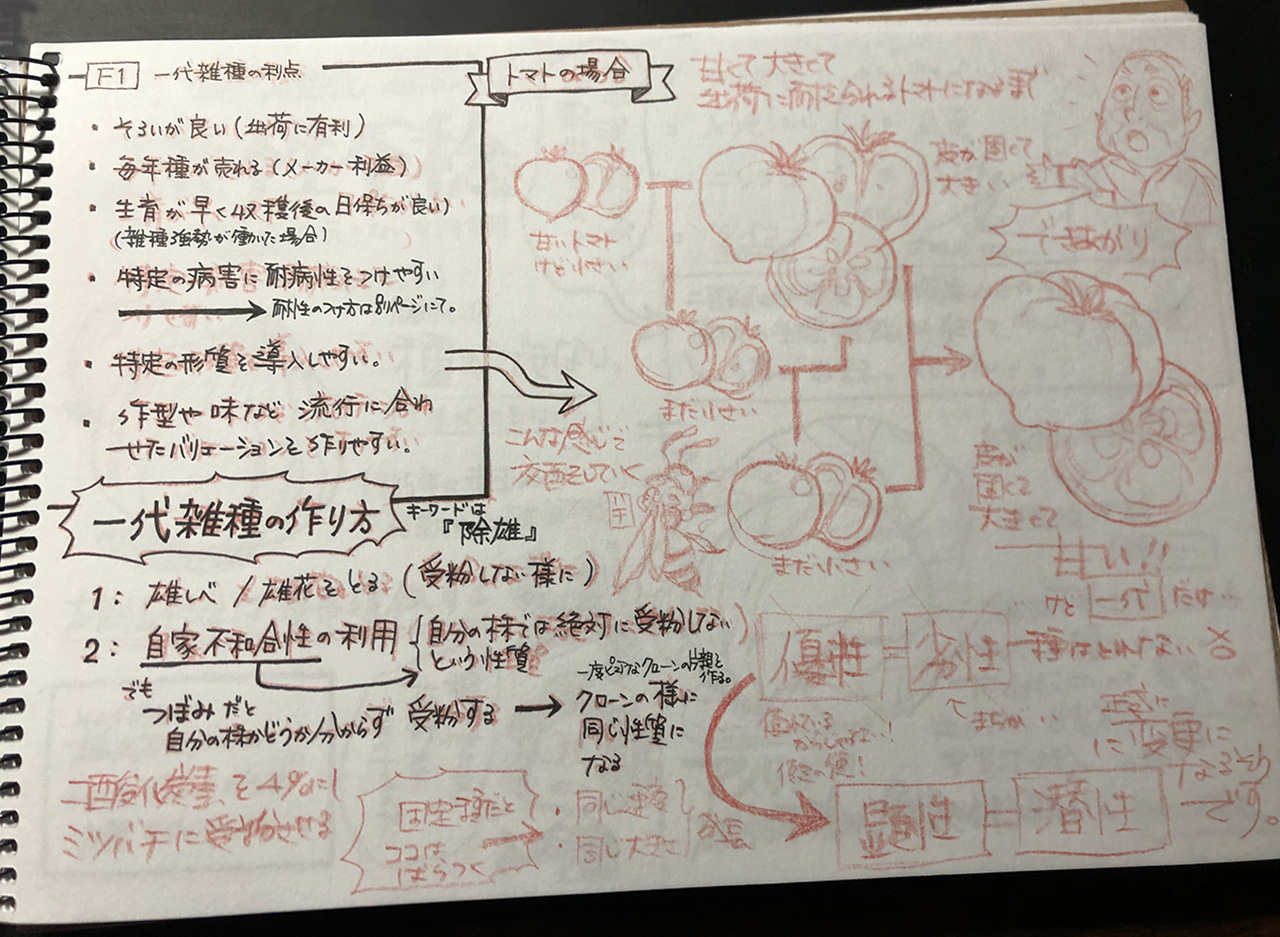 F1 一代雑種の利点
・そろいが良い(出荷に有利)
・毎年種が売れる(メーカー利益)
・生育が早く収穫後の日保ちが良い)
(雑種強勢が働いた場合)
・特定の病害に耐病性をつけやすい
→耐性のつけ方は別ページにて。
・特定の形質を導入しやすい。
・作型や味など流行に合わ
せたバリエーションを作りやすい。
トマトの場合
甘くて大きくて
出荷に耐えられるトマトになるまで
皮が固くて
大きい
甘いトマト
けど小さい
できあがり
まだ小さい
こんな感じで
交配をしていく
ハチ
まだ小さい
皮が
固くて
大きくて
甘い!!
けど一代だけ…
種はとれない
一代雑種の作り方
キーワードは
『除雄』
1: 雄しべ/雄花をとる(受粉しない様に)
2: 自家不和合性の利用
(自分の株では絶対に受粉しない)
という性質
でも
つぼみだと
自分の株かどうか分からず 受粉する
→
一度ピュアなクローンの
作る。
クローンの様に
同じ性質に
なる
二酸化炭素を4%にし
ミツバチに受粉させる
固定種だと
ココは
ばらつく
・同じ
・同じ大きさ
優性=劣性
まちがい
優の優!
正式に
に変更に
なるそう
です。
顕性=潜性